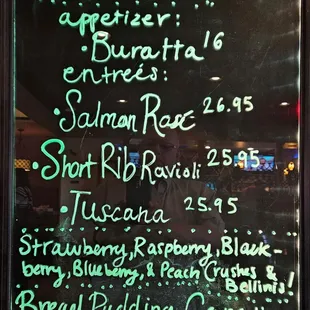 appetizer:
• Buratta 16
entreés:
• Salmon Rose 26.95
• Short Rib Ravioli 25.95
• Tuscana 25.95
Strawberry, Raspberry, Black-
berry, Blueberry, & Peach Crushes &
Bellinis!
Bread Pudding